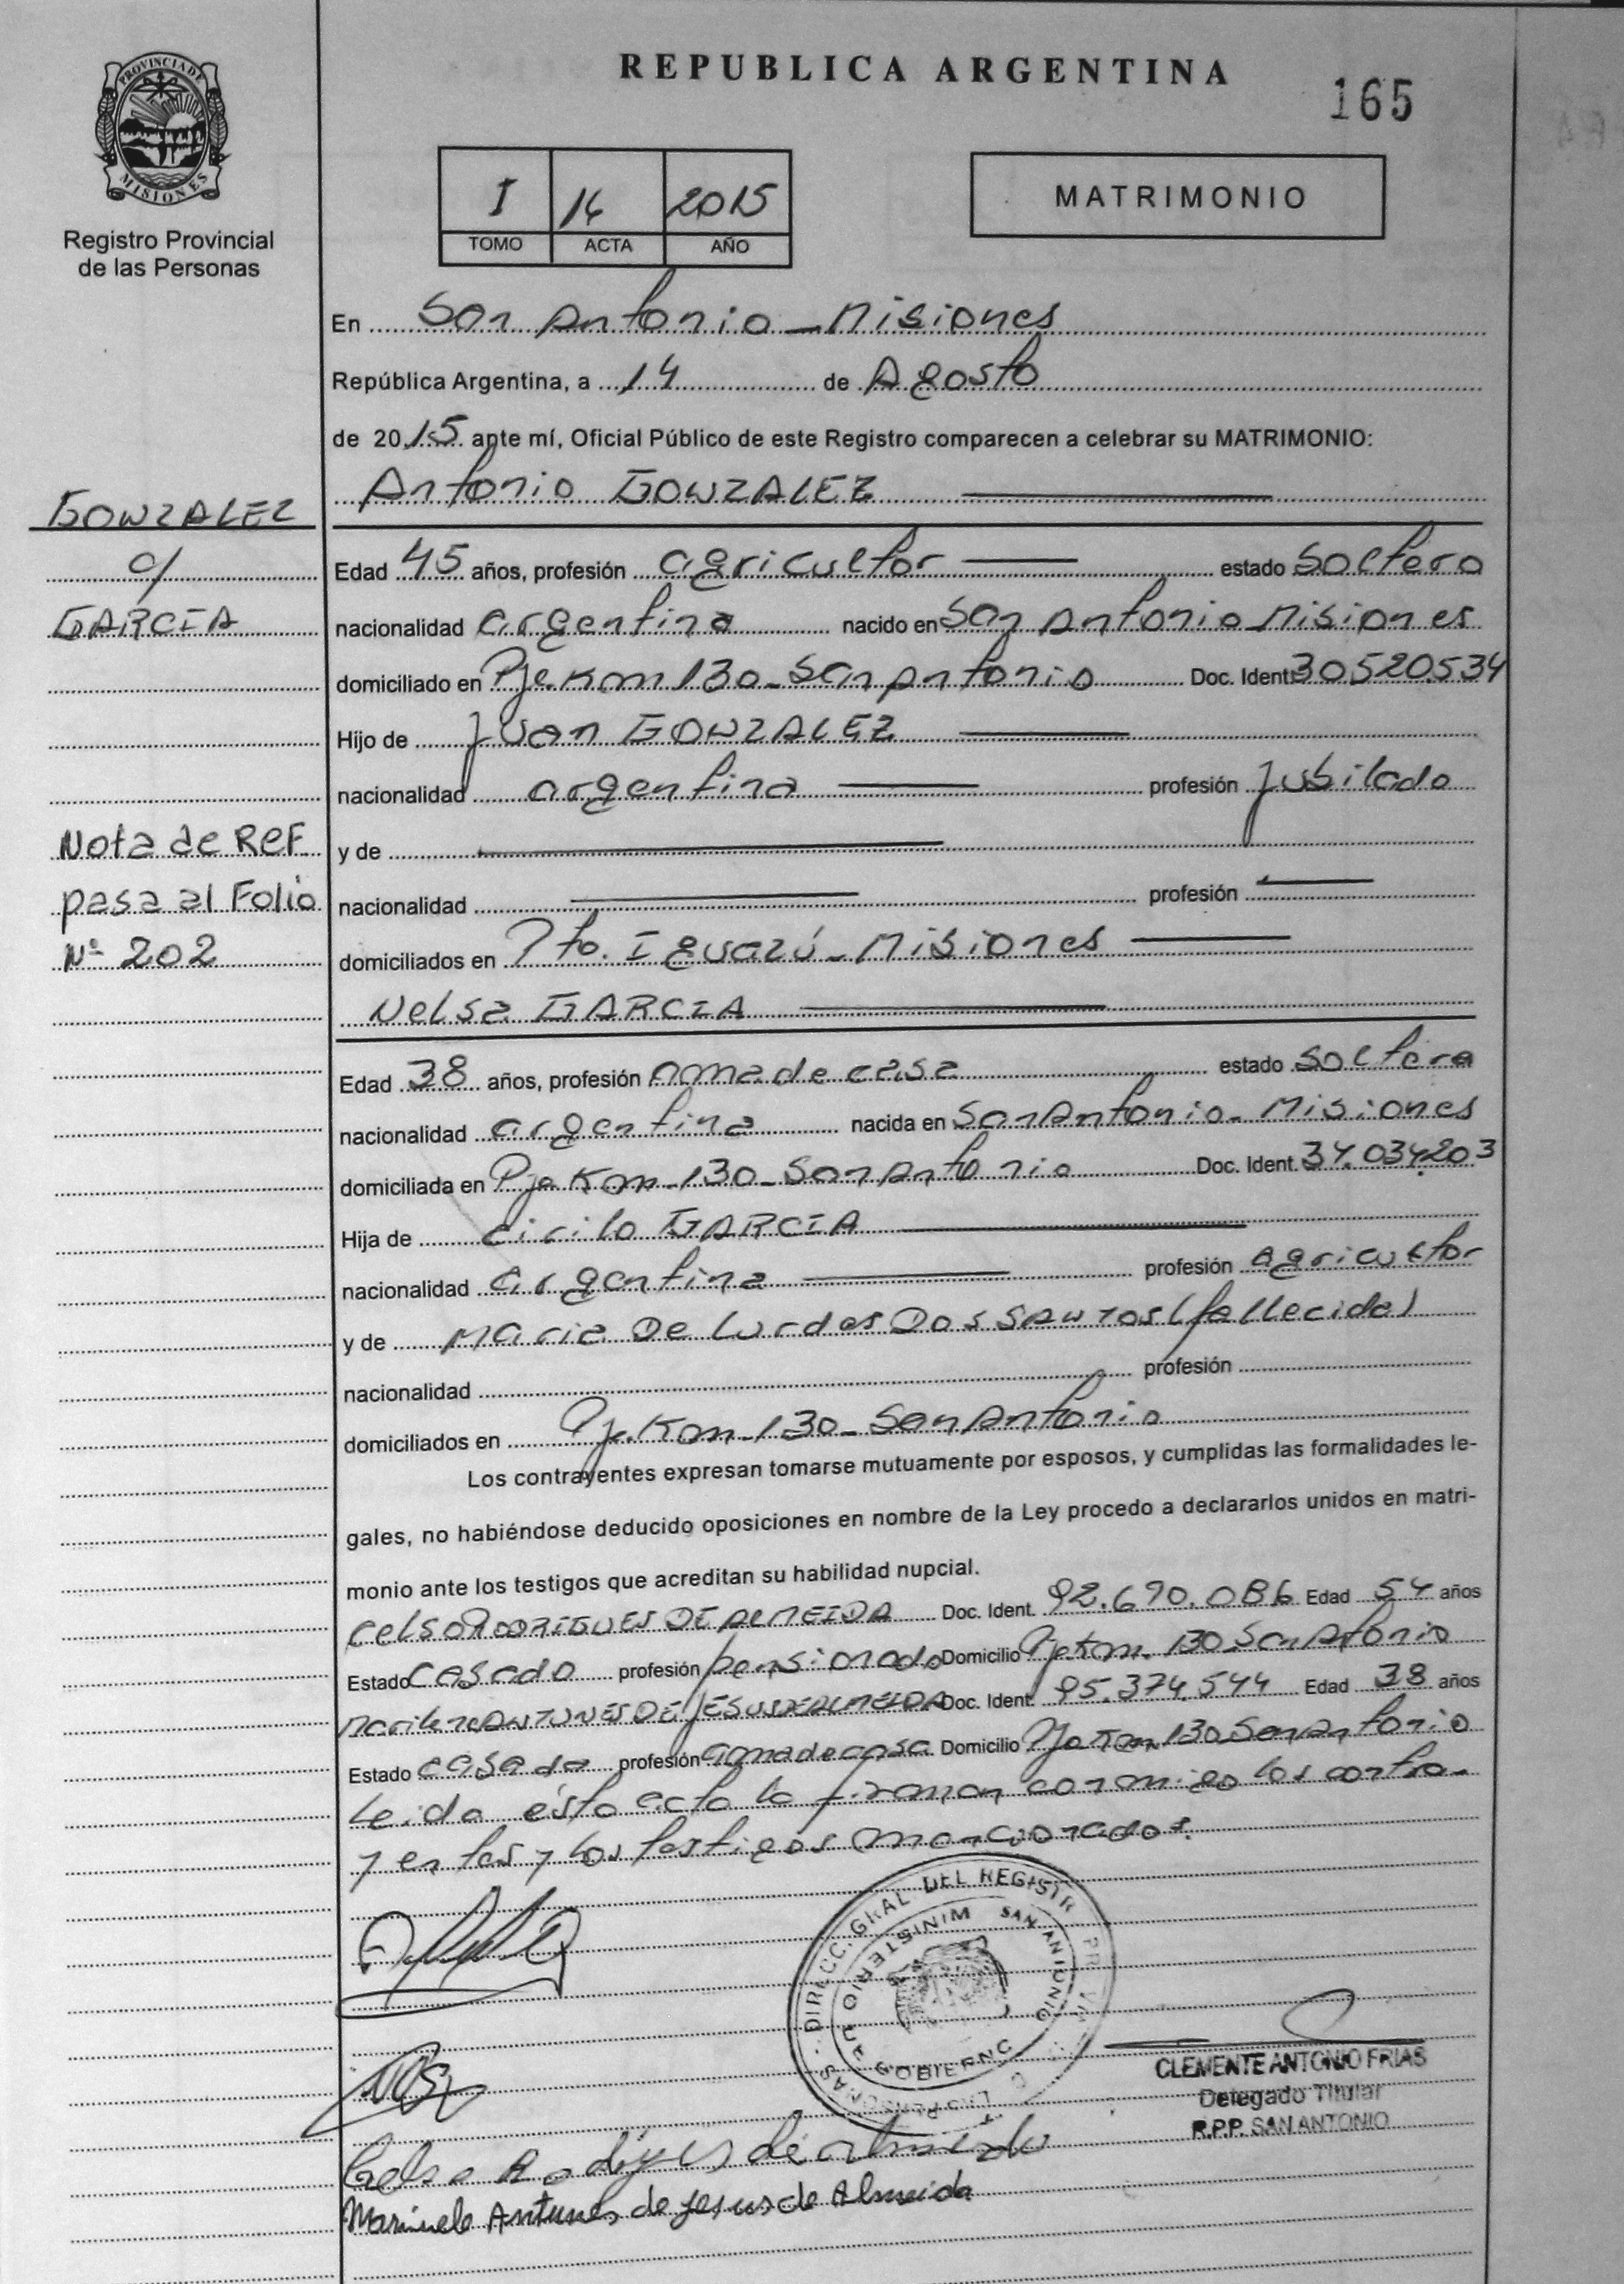 REPUBLICA ARGENTINA
165
PROVINCIA DE
MISIONES
Registro Provincial
de las Personas
I 14 2015
TOMO ACTA AÑO
MATRIMONIO
En San Antonio - Misiones
República Argentina, a 14 de Agosto
de 2015 ante mí, Oficial Público de este Registro comparecen a celebrar su MATRIMONIO:
Antonio GONZALEZ
GONZALEZ
c/
GARCIA
Edad 45 años, profesión agricultor estado Soltero
nacionalidad argentina nacido en San Antonio Misiones
domiciliado en Pje. Km 130 - San Antonio Doc. Ident. 30.520.534
Hijo de Juan GONZALEZ
nacionalidad argentina profesión Jubilado
Nota de REF.
pasa al Folio
Nº 202
y de
nacionalidad profesión
domiciliados en Pto. Iguazú - Misiones
Nelsa GARCIA
Edad 38 años, profesión ama de casa estado Soltera
nacionalidad argentina nacida en San Antonio - Misiones
domiciliada en Pje Km - 130 - San Antonio Doc. Ident. 34.034.203
Hija de Cirilo GARCIA
nacionalidad argentina profesión agricultor
y de Maria De Lurdes DOS SANTOS (fallecida)
nacionalidad profesión
domiciliados en Pje. Km - 130 - San Antonio
Los contrayentes expresan tomarse mutuamente por esposos, y cumplidas las formalidades le-
gales, no habiéndose deducido oposiciones en nombre de la Ley procedo a declararlos unidos en matri-
monio ante los testigos que acreditan su habilidad nupcial.
Celso RODRIGUES DE ALMEIDA Doc. Ident. 92.670.086 Edad 54 años
Estado Casado profesión pensionado Domicilio Pje Km. 130 San Antonio
ANTUNES DE JESUS DE ALMEIDA Doc. Ident. 95.374.544 Edad 38 años
Estado casada profesión ama de casa Domicilio Pje Km. 130 San Antonio
Leida ésta acta la firman conmigo los contra-
yentes y los testigos mencionados.
DIRECC. GRAL DEL REGISTR
MINISTERIO DE GOBIERNO
SAN ANTONIO
CLEMENTE ANTONIO FRIAS
Delegado Titular
R.P.P. SAN ANTONIO
Celso Rodigues de almeida
Antunes de Jesus de Almeida